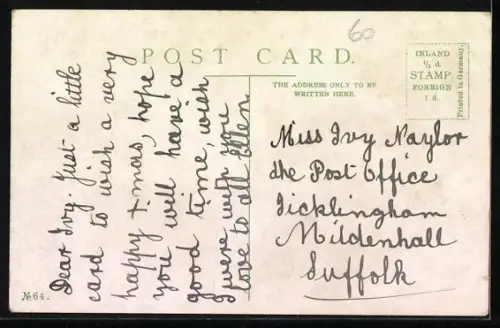 60
POST CARD.
INLAND
½ d.
STAMP.
FOREIGN
1 d.
Printed in Germany.
THE ADDRESS ONLY TO BE
WRITTEN HERE.
Dear Ivy. Just a little
card to wish a very
happy Xmas, hope
you will have a
good time, wish
I were with you
love to all Ellen.
Miss Ivy Naylor
the Post Office
Icklingham
Mildenhall
Suffolk
№64.